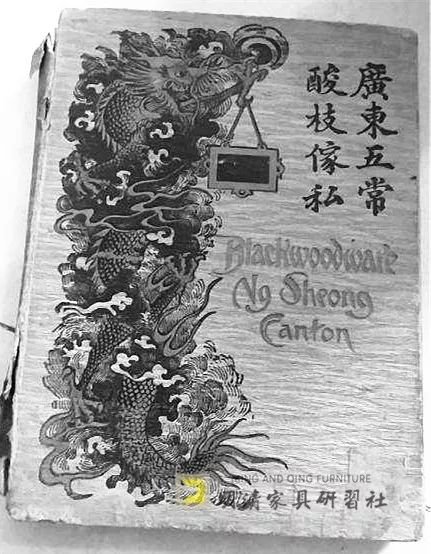 廣東五常
酸枝傢私
Blackwoodware
Ng Sheong
Canton
MING AND QING FURNITURE
明清家具研習社